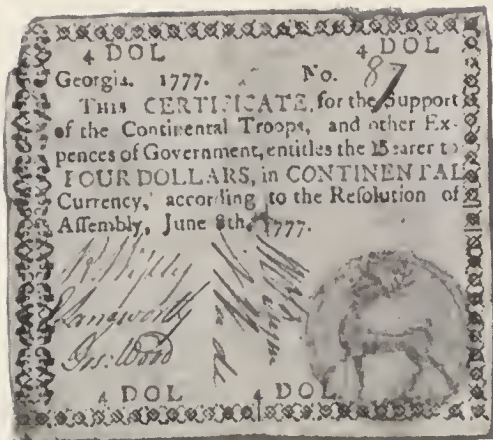 4 DOL 4 DOL
Georgia. 1777. No. 87
THIS CERTIFICATE, for the Support
of the Continental Troops, and other Ex-
pences of Government, entitles the Bearer to
FOUR DOLLARS, in CONTINENTAL
Currency, according to the Resolution of
Assembly, June 8th, 1777.
Langworthy
Jno. Wood
4 DOL 4 DOL